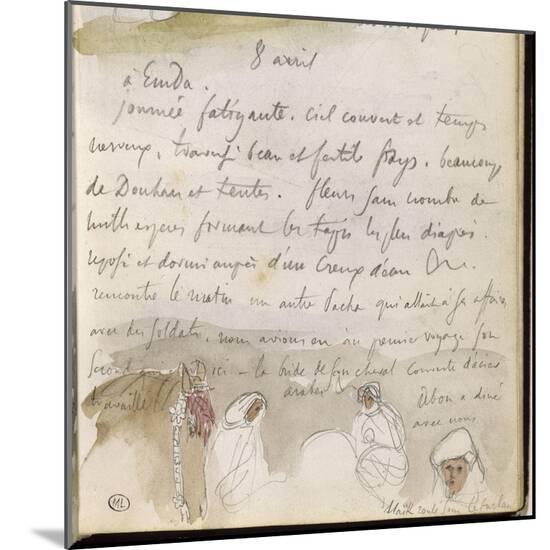 8 avril
à Emda.
journée fatigante. Ciel couvert et temps
nerveux, traversé beau et fertile pays. beaucoup
de Douhars et tentes. fleurs sans nombre de
mille especes formant les tapis les plus diaprés.
reposé et dormi auprès d'un Creux d'eau
rencontré le matin un autre Pacha qui allait à ses affaires
avec des soldats. nous avions eu au premier voyage son
Second ici - la bride de son cheval couverte d'acier
travaillé
arabes
Abou a diné
avec nous
ML